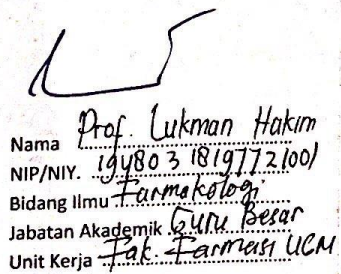 Nama Prof. Lukman Hakim
NIP/NIY. 19480318197721001
Bidang Ilmu Farmakologi
Jabatan Akademik Guru Besar
Unit Kerja Fak. Farmasi UGM